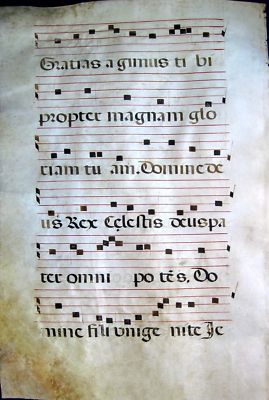 Gratias agimus ti bi
propter magnam glo
riam tu am. Domine de
us Rex Celestis deus pa
ter omni po tēs. Do
mine fili unige nite Je